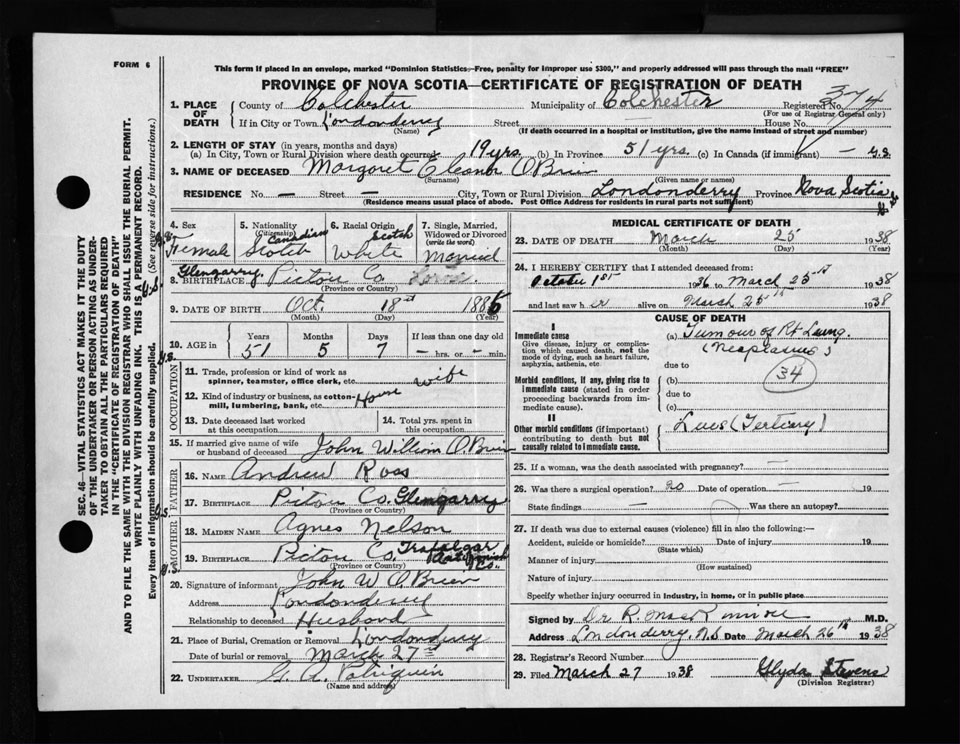 FORM 6
This form if placed in an envelope, marked "Dominion Statistics—Free, penalty for improper use $300," and properly addressed will pass through the mail "FREE"
PROVINCE OF NOVA SCOTIA—CERTIFICATE OF REGISTRATION OF DEATH
1. PLACE OF DEATH County of Colchester Municipality of Colchester Registered No. 374
(For use of Registrar General only)
If in City or Town Londonderry Street House No.
(Name) (If death occurred in a hospital or institution, give the name instead of street and number)
2. LENGTH OF STAY (in years, months and days)
(a) In City, Town or Rural Division where death occurred 19 yrs. (b) In Province 51 yrs. (c) In Canada (if immigrant) —
3. NAME OF DECEASED Margaret Eleanor O'Brien
(Surname) (Given name or names)
RESIDENCE No. — Street — City, Town or Rural Division Londonderry Province Nova Scotia
(Residence means usual place of abode. Post Office Address for residents in rural parts not sufficient)
4. Sex Female
5. Nationality (Citizenship) Canadian Scotch
6. Racial Origin Scotch White
7. Single, Married, Widowed or Divorced (write the word) Married
8. BIRTHPLACE Glengarry, Pictou Co
(Province or Country)
9. DATE OF BIRTH Oct. 18th 1886
(Month) (Day) (Year)
10. AGE in Years Months Days If less than one day old
51 5 7 — hrs. or — min.
OCCUPATION
11. Trade, profession or kind of work as spinner, teamster, office clerk, etc. wife
12. Kind of industry or business, as cotton-mill, lumbering, bank, etc. House
13. Date deceased last worked at this occupation
14. Total yrs. spent in this occupation
15. If married give name of wife or husband of deceased John William O'Brien
FATHER
16. NAME Andrew Ross
17. BIRTHPLACE Pictou Co. Glengarry
(Province or Country)
MOTHER
18. MAIDEN NAME Agnes Nelson
19. BIRTHPLACE Pictou Co. Trafalgar
(Province or Country)
20. Signature of informant John W O'Brien
Address Londonderry
Relationship to deceased Husband
21. Place of Burial, Cremation or Removal Londonderry
Date of burial or removal March 27th
22. UNDERTAKER G. A. Patriquin
(Name and address)
MEDICAL CERTIFICATE OF DEATH
23. DATE OF DEATH March 25 1938
(Month) (Day) (Year)
24. I HEREBY CERTIFY that I attended deceased from:
October 1st 1936 to March 25th 1938
and last saw her alive on March 25th 1938
CAUSE OF DEATH
I
Immediate cause
Give disease, injury or complication which caused death, not the mode of dying, such as heart failure, asphyxia, asthenia, etc.
(a) Tumour of Rt Lung.
(Neoplasms)
due to
34
Morbid conditions, if any, giving rise to immediate cause (stated in order proceeding backwards from immediate cause).
(b)
due to
(c)
II
Other morbid conditions (if important) contributing to death but not causally related to immediate cause.
Lues (Tertiary)
25. If a woman, was the death associated with pregnancy? —
26. Was there a surgical operation? no Date of operation — 19
State findings — Was there an autopsy?
27. If death was due to external causes (violence) fill in also the following:—
Accident, suicide or homicide? Date of injury 19
(State which)
Manner of injury
(How sustained)
Nature of injury
Specify whether injury occurred in industry, in home, or in public place
Signed by Dr R. M.D.
Address Londonderry N.S Date March 26th 1938
28. Registrar's Record Number
29. Filed March 27 1938 Glyda Stevens
(Division Registrar)
SEC. 46—VITAL STATISTICS ACT MAKES IT THE DUTY
OF THE UNDERTAKER OR PERSON ACTING AS UNDERTAKER
TO OBTAIN ALL THE PARTICULARS REQUIRED
IN THE "CERTIFICATE OF REGISTRATION OF DEATH"
AND TO FILE THE SAME WITH THE DIVISION REGISTRAR WHO SHALL ISSUE THE BURIAL PERMIT.
WRITE PLAINLY WITH UNFADING INK. THIS IS A PERMANENT RECORD.
Every item of information should be carefully supplied. (See reverse side for instructions.)